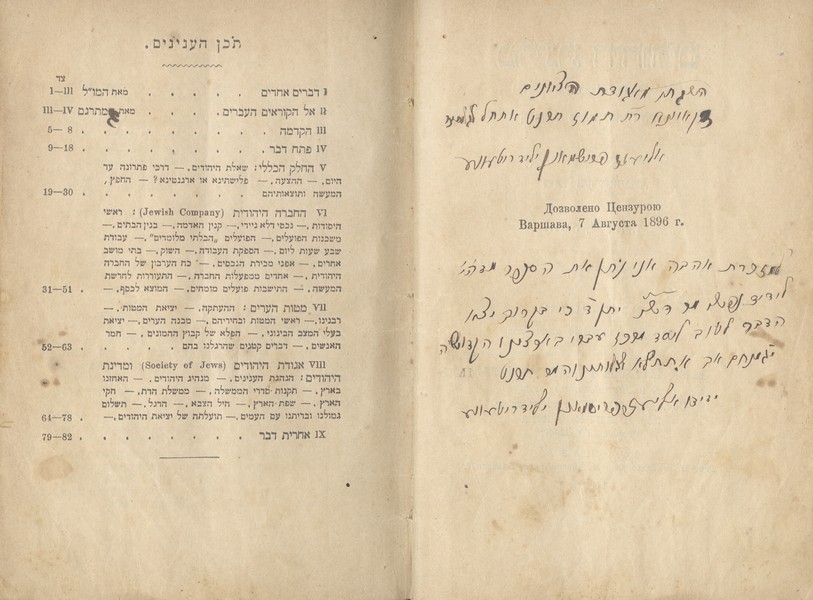 השגתי מאגודת הציונים
אליעזר
Дозволено Цензурою
Варшава, 7 Августа 1896 г.
למזכרת אהבה אנו נותן את הספר הזה
לידיד נפשי מר כי בקרוב יצא
הדבר לטוב ליסד מרכז עברי בארצינו הקדושה
ידידו אליעזר
תכן הענינים.
צד
I דברים אחדים . . . . . מאת המו״ל I—III
II אל הקוראים העברים . . . . מאת המתרגם III—IV
III הקדמה . . . . . . . . 5— 8
IV פתח דבר . . . . . . . . 9—18
V החלק הכללי: שאלת היהודים, — דרכי פתרונה עד
היום, — ההצעה, — פלישתינא או ארגנטינא? — החפץ,
המעשה ותוצאותיהם . . . . . . . 19—30
VI החברה היהודית (Jewish Company): ראשי
היסודות, — נכסי דלא ניידי, — קנין האדמה, — בנין הבתים, —
משכנות הפועלים, — הפועלים „הבלתי מלומדים”, — עבודת
שבע שעות ליום, — הספקת העבודה, — השוק, — בתי מושב
אחרים, — אפני מכירת הנכסים, — כח הערבון של החברה
היהודית, — אחדים ממפעלות החברה, — התעוררות לחרשת
המעשה, — התישבות פועלים מומחים, — המוצא לכסף, — . 31—51
VII מטות הערים: ההעתקה, — יציאת המטות, —
רבנינו, — ראשי המטות ובחיריהם, — מבנה הערים, — יציאת
בעלי המצב הבינוני, — הפלא של קבוץ ההמונים, — חמר
האנשים, — דברים קטנים שהרגלנו בהם . . . . 52—63
VIII אגודת היהודים (Society of Jews) ומדינת
היהודים: הנהגת הענינים, — מנהיג היהודים, — האחוזה
בארץ, — תקנות סדרי הממשלה, — ממשלת הדת, — חקי
הארץ, — שפת הארץ, — חיל הצבא, — הדגל, — תשלום
גמולנו ובריתנו עם העמים, — תועלתה של יציאת היהודים, — . 64—78
IX אחרית דבר . . . . . . . 79—82